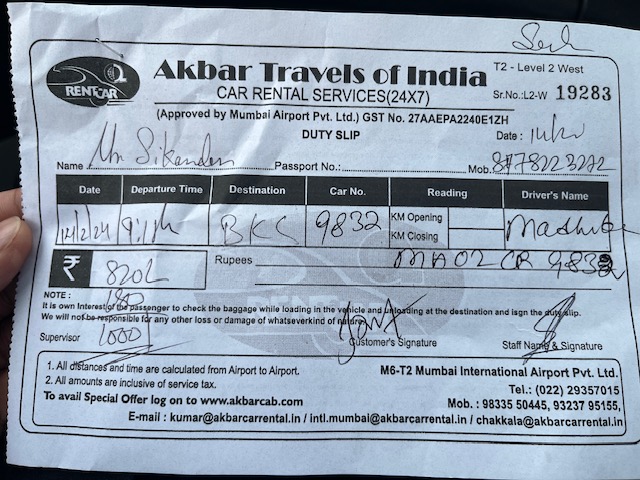 RENTCAR
Akbar Travels of India
CAR RENTAL SERVICES(24X7)
(Approved by Mumbai Airport Pvt. Ltd.) GST No. 27AAEPA2240E1ZH
DUTY SLIP
T2 - Level 2 West
Sr.No.:L2-W 19283
Date :
Name Mr Sikander Passport No.: Mob.
Date Departure Time Destination Car No. Reading Driver's Name
14/2/24 BKC 9832 KM Opening
KM Closing
₹ 820/ Rupees MH02 CR 9832
180
1000
NOTE :
It is own Interest of the passenger to check the baggage while loading in the vehicle and unloading at the destination and isgn the duty slip.
We will not be responsible for any other loss or damage of whatseverkind of nature.
Supervisor Customer's Signature Staff Name & Signature
1. All distances and time are calculated from Airport to Airport.
2. All amounts are inclusive of service tax.
To avail Special Offer log on to www.akbarcab.com
M6-T2 Mumbai International Airport Pvt. Ltd.
Tel.: (022) 29357015
Mob. : 98335 50445, 93237 95155,
E-mail : kumar@akbarcarrental.in / intl.mumbai@akbarcarrental.in / chakkala@akbarcarrental.in